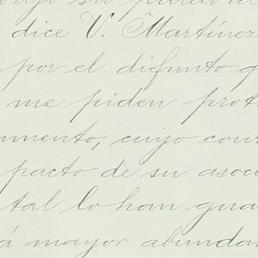 dice V. Martínez
por el difunto
me piden prot
mento, cuyo con
pacto de su asoc
tal lo han gua
á mayor abundan